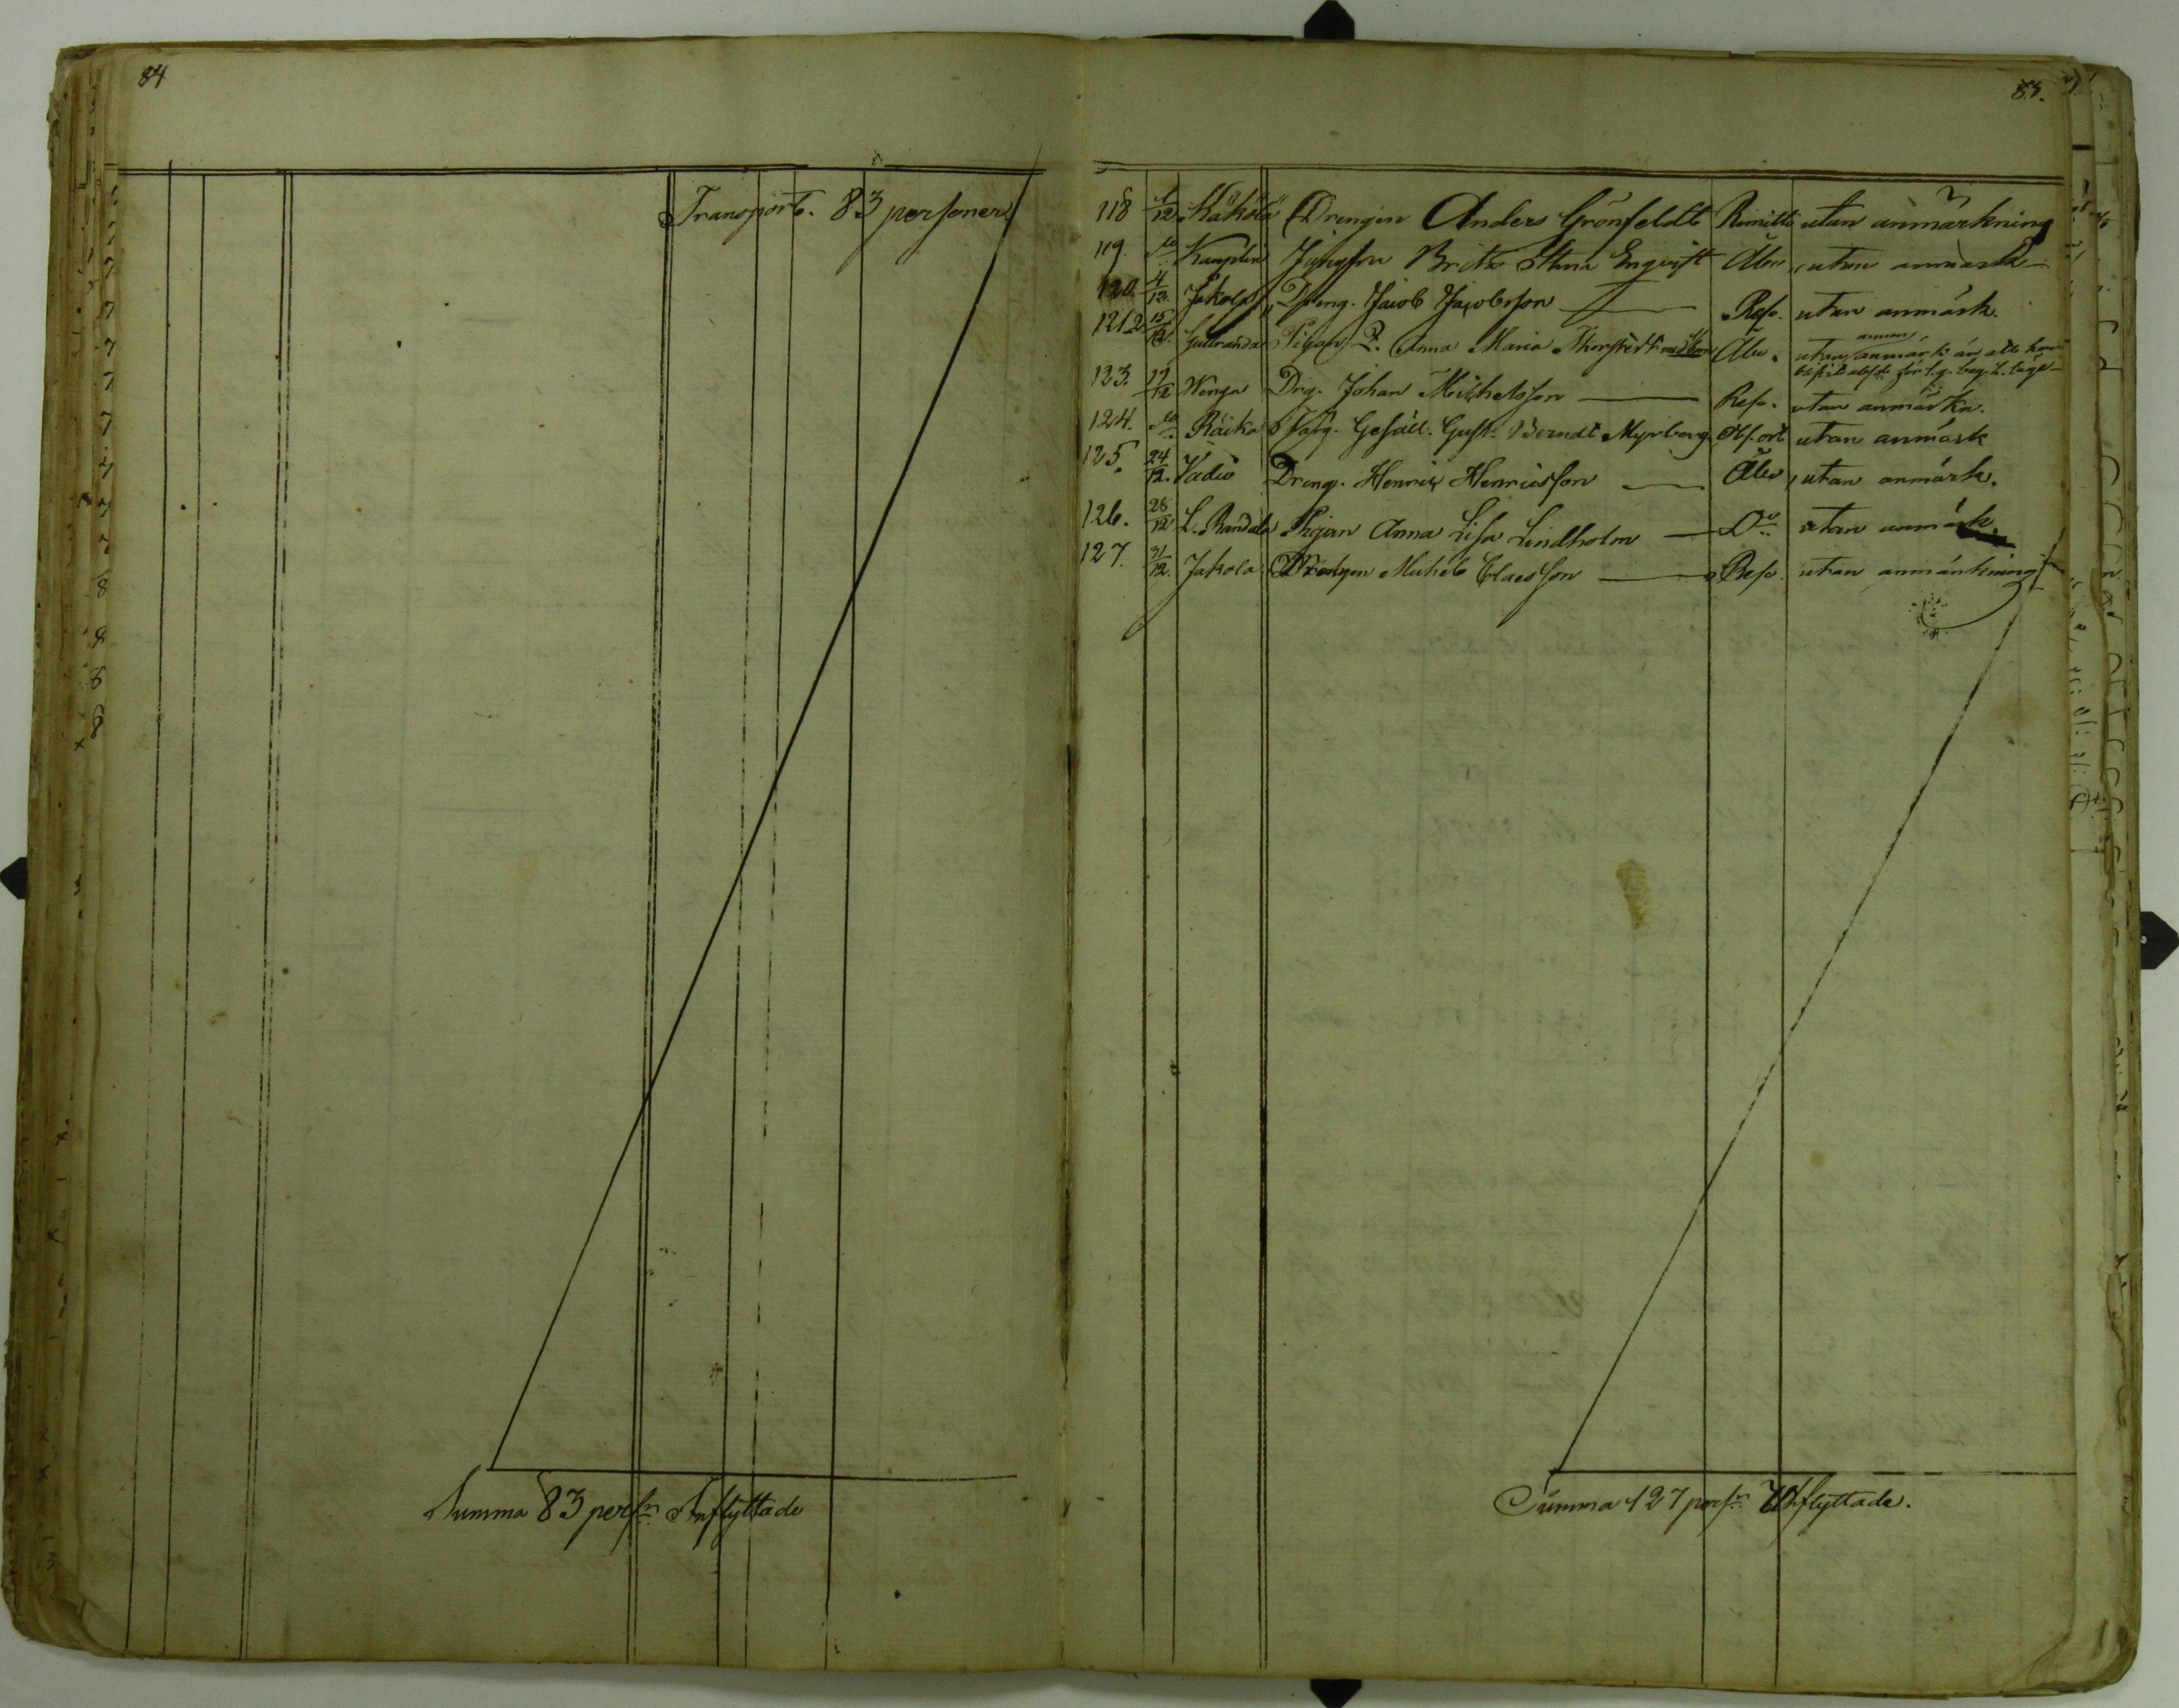 84
Transport. 83 personer
Summa 83 persr Inflyttade
85.
118 1/12 Käkölä Drengen Anders Grönfeldt Rimitto utan anmärkning
119. do Jungfru Brita Stina Enqvist Åbo, utan anmärk
120. 4/12. Jakola Dreng. Jacob Jacobsson Reso. utan anmärk.
121.2 15/12. Pigan Anna Maria Åbo. utan annan anmärk än att hon
123. 17/12 Wenga Drg. Johan Michelsson Reso. utan anmärkn.
124. do Räcka Gesäll. Gust. Berndt Myrberg utan anmärk
125. 24/12. Dreng. Henric Henricsson Åbo, utan anmärk.
126. 28/12 L. Randala Pigan Anna Lisa Lindholm Do utan anmärk.
127. 31/12. Jakola Drengen Michel Claesson Reso. utan anmärkning
Summa 127 persr Utflyttade.